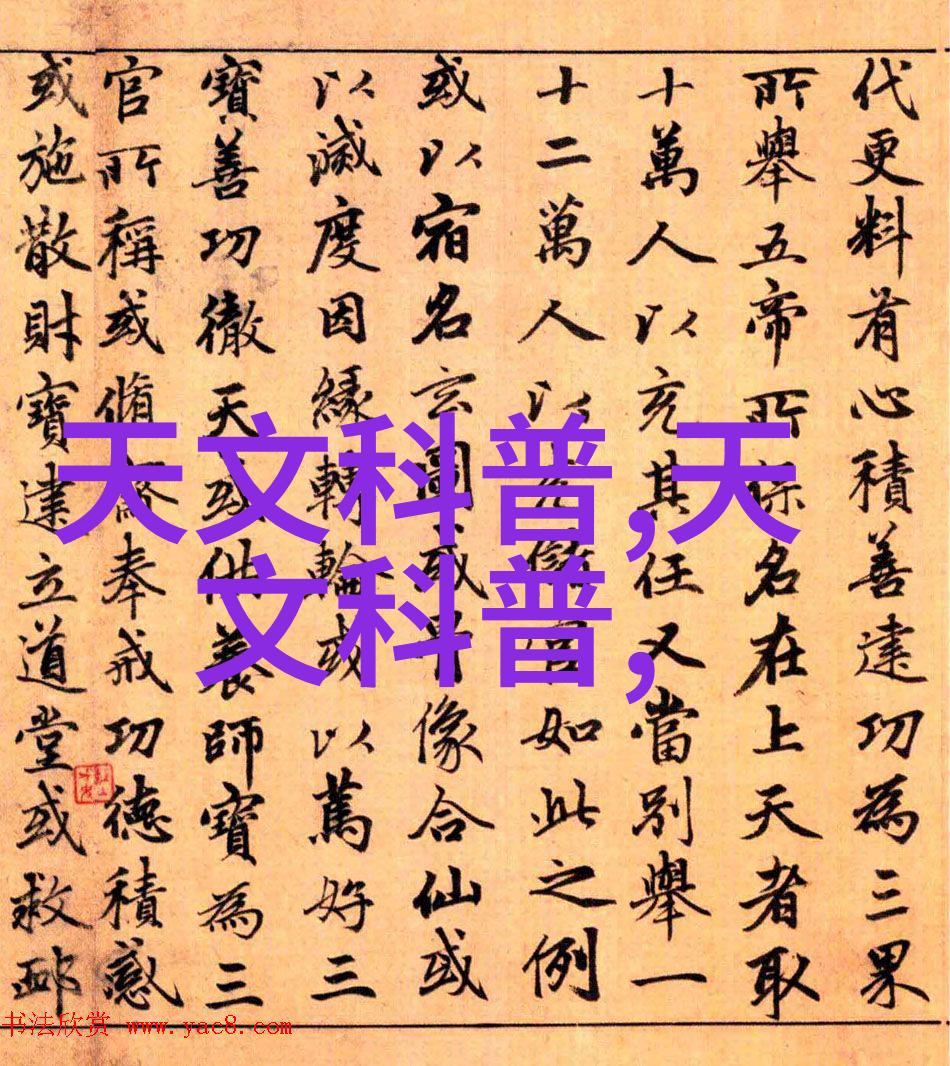 代更料有心積善建功為三果
所舉五帝所綜名在上天者取
十萬人以充其任又當別舉一
十二萬人以 如此之例
或以宿名玄圖或骨像合仙或
以滅度因緣轉輪或以篤好三
寶善功徹天或供養師寶為三
官所稱或脩齋奉戒功德積感
或施散財寶建立道堂或救卹
天文科普,天
文科普,
书法欣赏 www.yac8.com